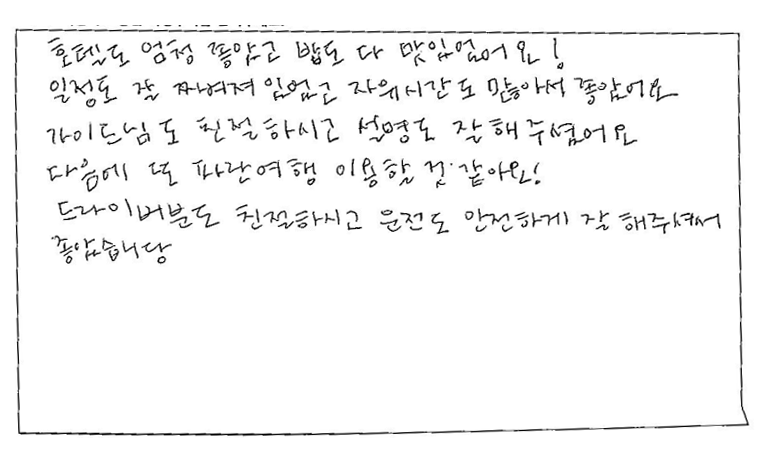 호텔도 엄청 좋았고 밥도 다 맛있었어요!
일정도 잘 짜여져 있었고 자유시간도 많아서 좋았어요
가이드님도 친절하시고 설명도 잘해주셨어요
다음에 또 파란여행 이용할 것 같아요!
드라이버분도 친절하시고 운전도 안전하게 잘 해주셔서
좋았습니당